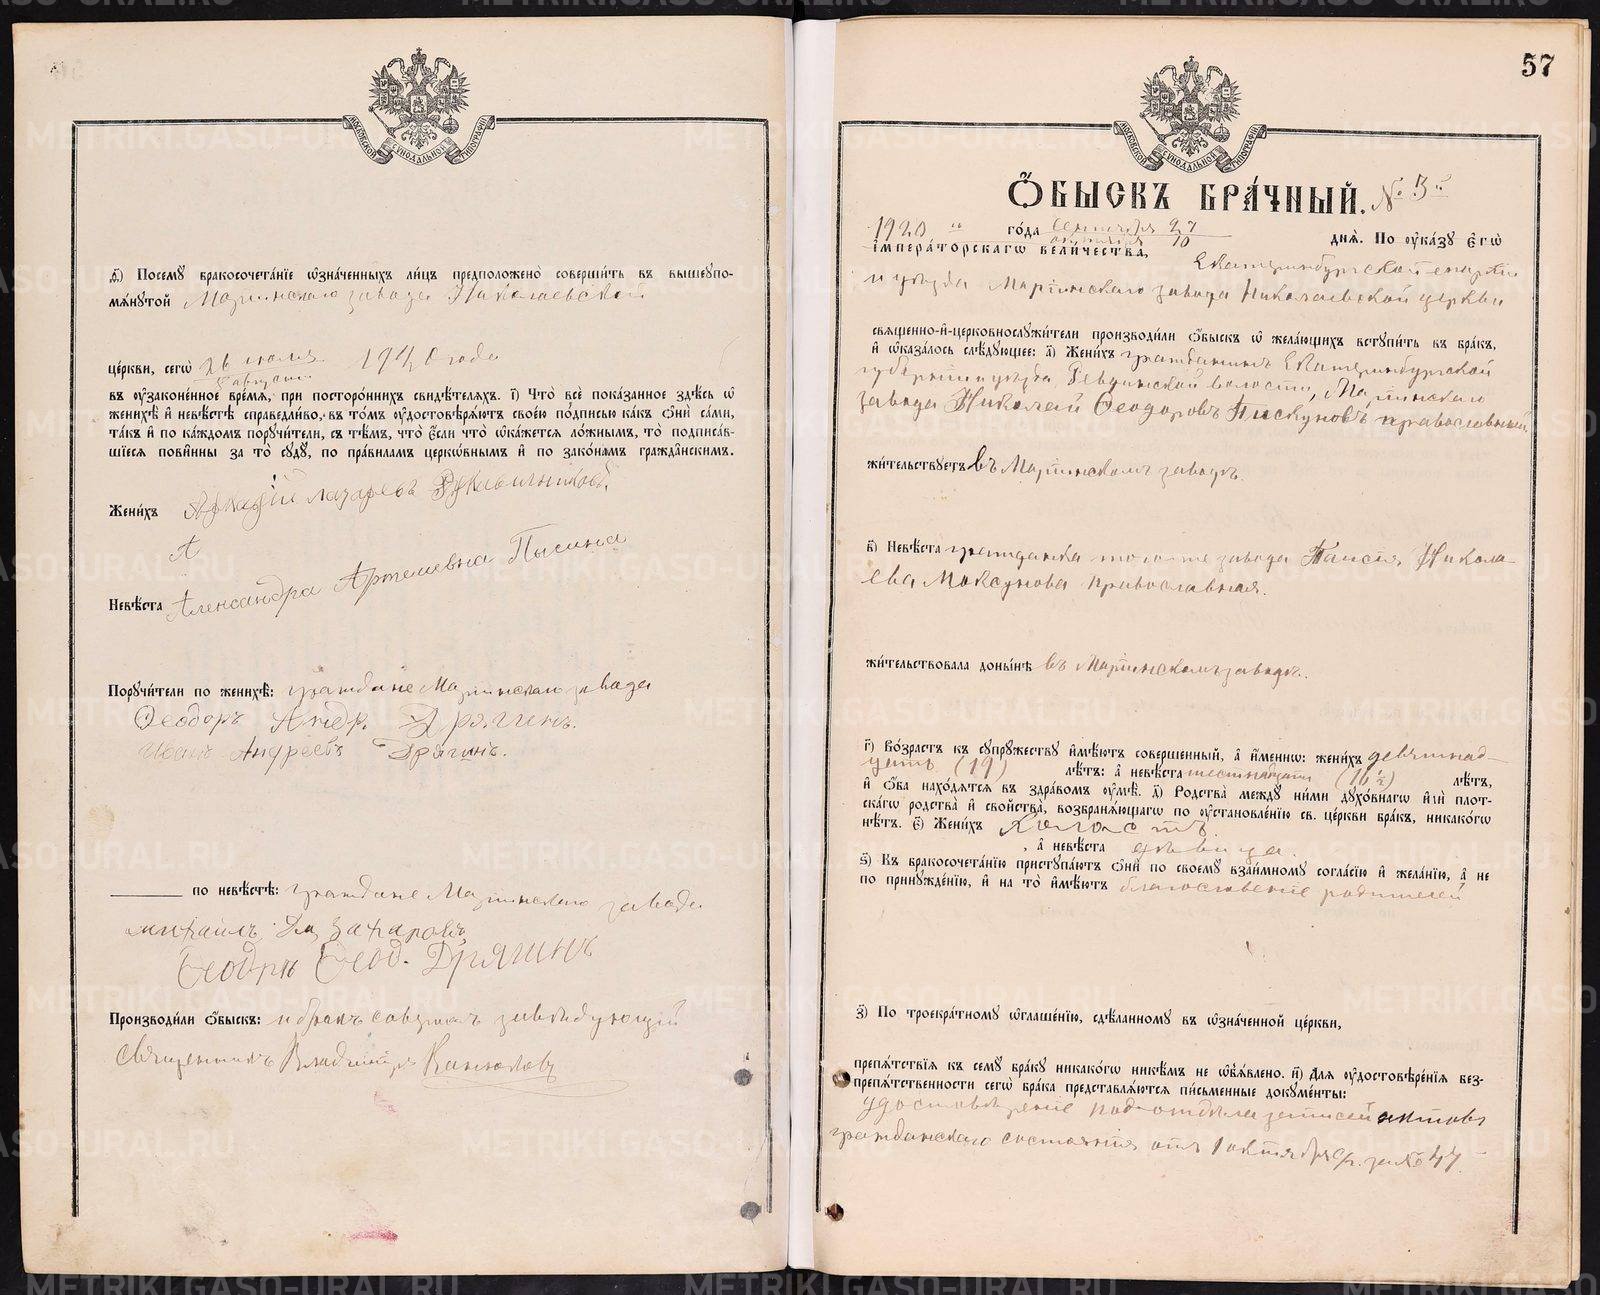 МОСКОВСКОЙ СѴНОДАЛЬНОЙ ТИПОГРАФІИ
з҃) Посемꙋ бракосочета́нїе ѡ҆зна́ченныхъ ли́цъ предположено̀ соверши́ть въ вышеꙋпо-
мѧ́нꙋтой Маріинскаго завода Николаевской
це́ркви, сегѡ̀ 26 іюля 1920 года
8 августа
въ ᲂу҆зако́ненное вре́мѧ, при посторо́ннихъ свидѣ́телѧхъ. і҃) Что̀ всѐ пока́занное здѣ́сь ѡ҆
женихѣ̀ и҆ невѣ́стѣ справедли́во, въ то́мъ ᲂу҆достовѣрѧ́ютъ свое́ю по́дписью ка́къ ѻ҆нѝ са́ми,
та́къ и҆ по ка́ждомъ порꙋчи́тели, съ тѣ́мъ, что̀ є҆́сли что̀ ѡ҆ка́жетсѧ ло́жнымъ, то̀ подписа́в-
шїесѧ пови́нны за то̀ сꙋдꙋ̀, по пра́виламъ церко́внымъ и҆ по зако́намъ гражда́нскимъ.
Жени́хъ Аркадій Лазаревъ Рукавишниковъ
А
Невѣ́ста Александра Артемевна Пысина
Порꙋчи́тели по женихѣ̀: граждане Маріинскаго завода
Ѳеодоръ Андр. Дрягинъ.
Иванъ Андреевъ Дрягинъ.
по невѣ́стѣ: граждане Маріинскаго завода
Михаилъ Захаровъ
Ѳеодръ Ѳеод. Дрягинъ
Производи́ли ѻ҆́быскъ: и бракъ совершалъ завѣдующій
Священникъ Владимиръ
57
МОСКОВСКОЙ СѴНОДАЛЬНОЙ ТИПОГРАФІИ
Ѻ҆́БЫСКЪ БРА́ЧНЫЙ. № 5й
1920 го́да сентября 27 днѧ̀. По ᲂу҆ка́зꙋ є҆гѡ̀
октября 10
и҆мпера́торскагѡ вели́чества, Екатеринбургской епархіи
и уѣзда Маріинскаго завода Николаевской церкви
свѧще́нно-и҆-церковнослꙋжи́тели производи́ли ѻ҆́быскъ ѡ҆ жела́ющихъ встꙋпи́ть въ бра́къ,
и҆ ѡ҆каза́лось слѣ́дꙋющее: а҃) Жени́хъ гражданинъ Екатеринбургской
губерніи и уѣзда, Ревдинской волости, Маріинскаго
завода Николай Ѳеодоровъ Пискуновъ православный
жи́тельствꙋетъ въ Маріинскомъ заводѣ.
в҃) Невѣ́ста гражданка того-же завода Таисія Никола-
ева Моксунова православная.
жи́тельствовала доны́нѣ въ Маріинскомъ заводѣ.
г҃) Во́зрастъ къ сꙋпрꙋ́жествꙋ и҆мѣ́ютъ соверше́нный, а҆ и҆́меннѡ: жени́хъ девятнад-
цать (19) лѣ́тъ: а҆ невѣ́ста шестнадцати (16 1/2) лѣ́тъ,
и҆ ѻ҆́ба нахо́дѧтсѧ въ здра́вомъ ᲂу҆мѣ̀. д҃) Родства̀ междꙋ̀ ни́ми дꙋхо́внагѡ и҆лѝ плот-
ска́гѡ родства̀ и҆ сво́йства, возбранѧ́ющагѡ по ᲂу҆становле́нїю св. це́ркви бра́къ, никако́гѡ
нѣ́тъ. є҃) Жени́хъ холостъ.
, а҆ невѣ́ста дѣвица.
ѕ҃) Къ бракосочета́нїю пристꙋпа́ютъ ѻ҆нѝ по своемꙋ̀ взаи́мномꙋ согла́сїю и҆ жела́нїю, а҆ не
по принꙋжде́нїю, и҆ на то̀ и҆мѣ́ютъ благословеніе родителей
з҃) По троекра́тномꙋ ѡ҆глаше́нїю, сдѣ́ланномꙋ въ ѡ҆зна́ченной це́ркви,
препѧ́тствїѧ къ семꙋ̀ бра́кꙋ никако́гѡ никѣ́мъ не ѡ҆б̾ѧ́влено. и҃) Длѧ̀ ᲂу҆достовѣре́нїѧ без-
препѧ́тственности сегѡ̀ бра́ка представлѧ́ютсѧ пи́сьменные докꙋме́нты:
удостовѣреніе подотдѣла записей актовъ
гражданскаго состоянія отъ 1 октября с.г. за № 47.
METRIKI.GASO-URAL.RU